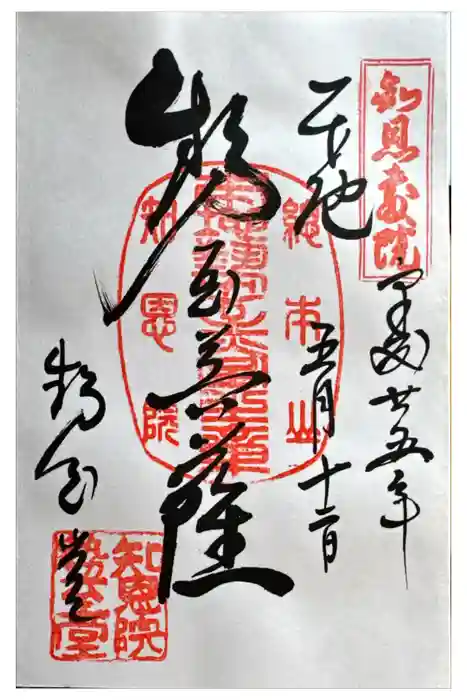 知恩教院
平成廿五年
五月十二日
勢至菩薩
總本山
知恩院
勢至堂
知恩院
勢至堂